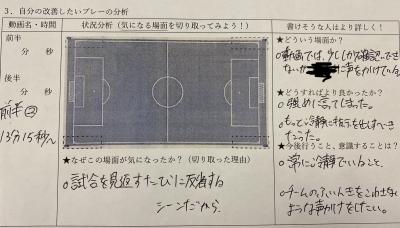 3．自分の改善したいプレーの分析
動画名・時間
状況分析（気になる場面を切り取ってみよう！）
書けそうな人はより詳しく！
前半
後半
前半②
13分15秒
★なぜこの場面が気になったか？（切り取った理由）
○試合を見返すたびに反省する
シーンだから
★どういう場面か？
○動画では、少ししか確認できない
に声をかけている。
★どうすればより良かったか？
○強めに言ってしまった。
○もっと冷静に
だった。
★今後行うこと、意識することは？
○常に冷静でいること、
○チームのふんいきをこわさない
ような声かけをしたい。